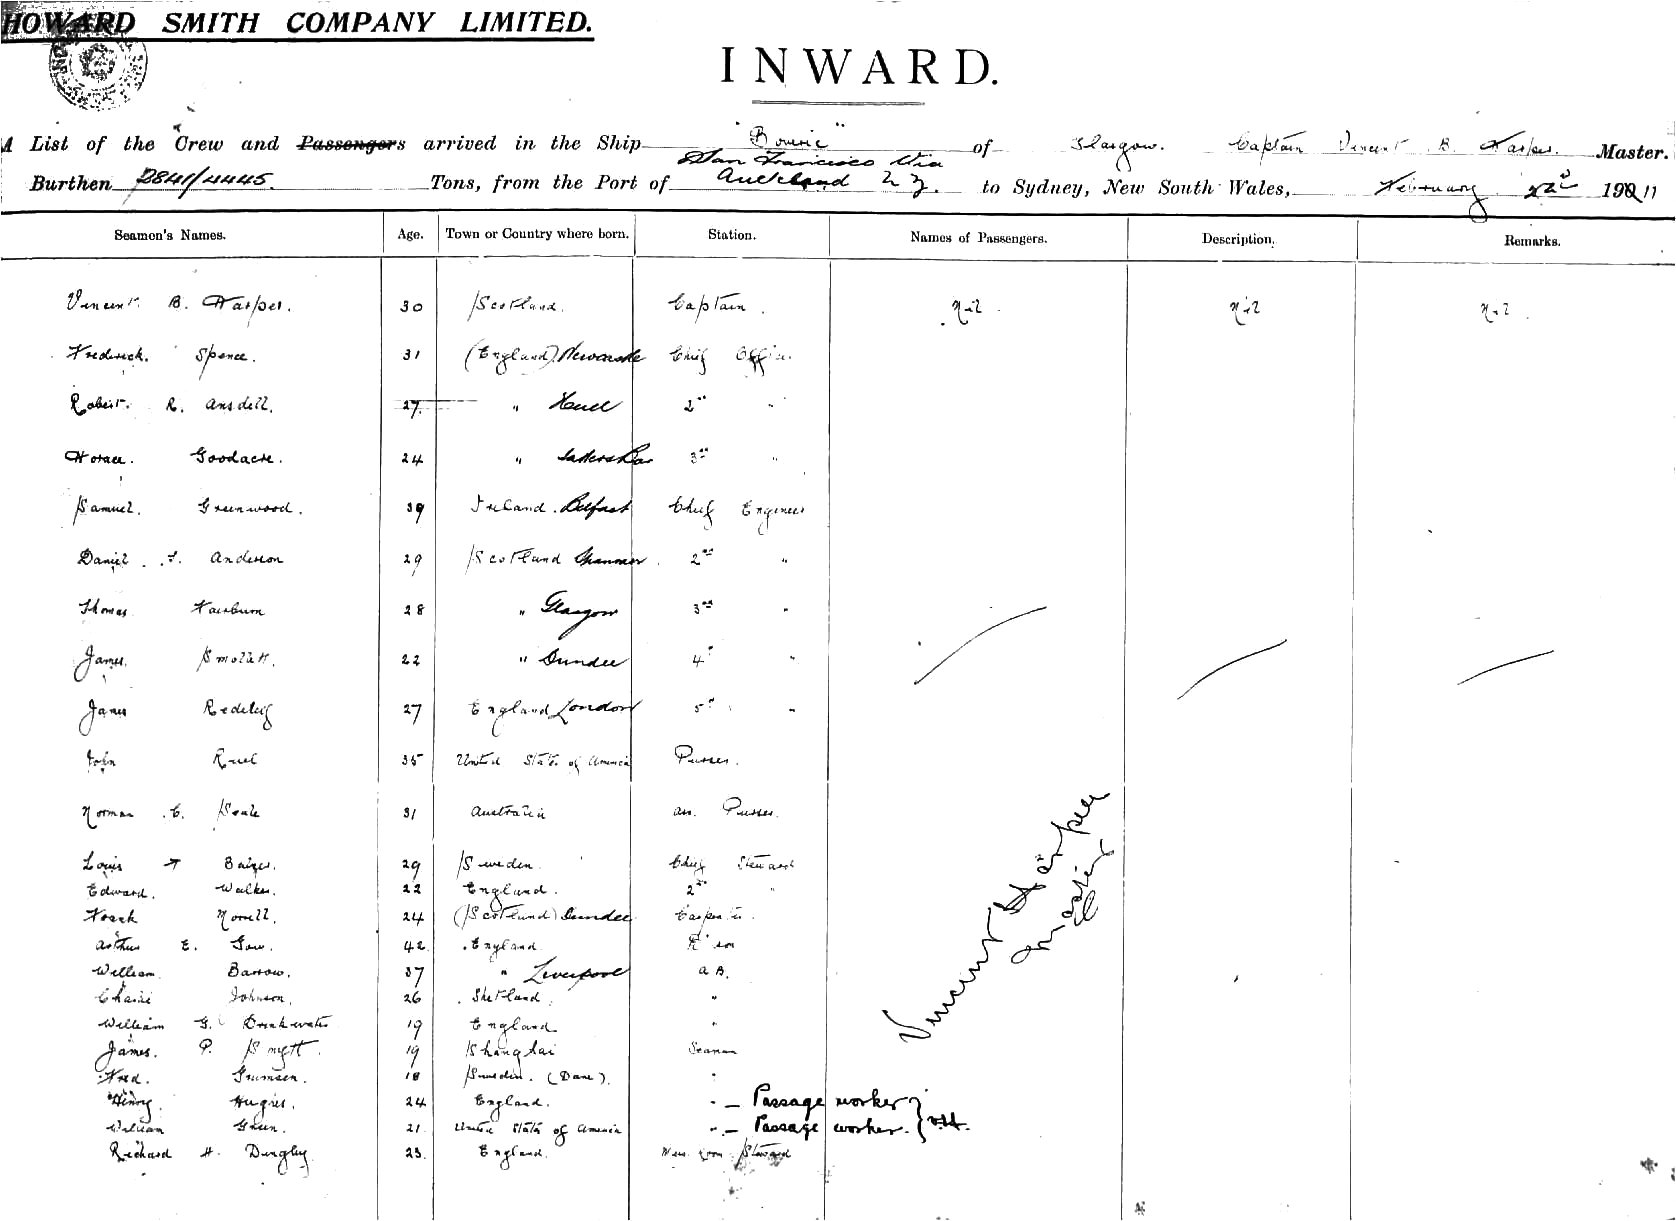 HOWARD SMITH COMPANY LIMITED.
INWARD.
A List of the Crew and Passengers arrived in the Ship "Boveric" of Glasgow. Captain Vincent B. Harper. Master.
Burthen 2841/4445. Tons, from the Port of San Francisco Via Auckland N Z. to Sydney, New South Wales, February 22nd 1911
Seamen's Names. Age. Town or Country where born. Station. Names of Passengers. Description. Remarks.
Vincent B. Harper. 30 Scotland. Captain. Nil. Nil Nil.
Frederick. Spence. 31 (England) Newcastle Chief Officer.
Robert. R. Ansdell. 27. " Hull 2nd "
Horace. Goodacre. 24 " 3rd "
Samuel. Greenwood. 39 Ireland. Belfast Chief Engineer
Daniel. Anderson 29 Scotland 2nd "
Thomas Fairburn 28 " Glasgow 3rd "
James. 22 " Dundee 4th "
James 27 England London 5th "
John 35 United States of America Purser.
Norman C. 31 Australia ass. Purser.
Louis 29 Sweden. Chief Steward
Edward. Walker. 22 England. 2nd "
Frank Morrell. 24 (Scotland) Dundee Carpenter.
Arthur E. Gow. 42. England.
William. Barrow. 37 " Liverpool A.B.
Johnson. 26 Shetland. "
William G. Drinkwater 19 England "
James. P. Smytt. 19 Shanghai Seaman
Fred. 18 Sweden. (Dane). "
Henry. Hughes. 24 England. " — Passage worker } V.H.
William Green. 21. United States of America " — Passage worker.
Richard H. Dungley 23. England. Mess room Steward
Vincent Harper
Master